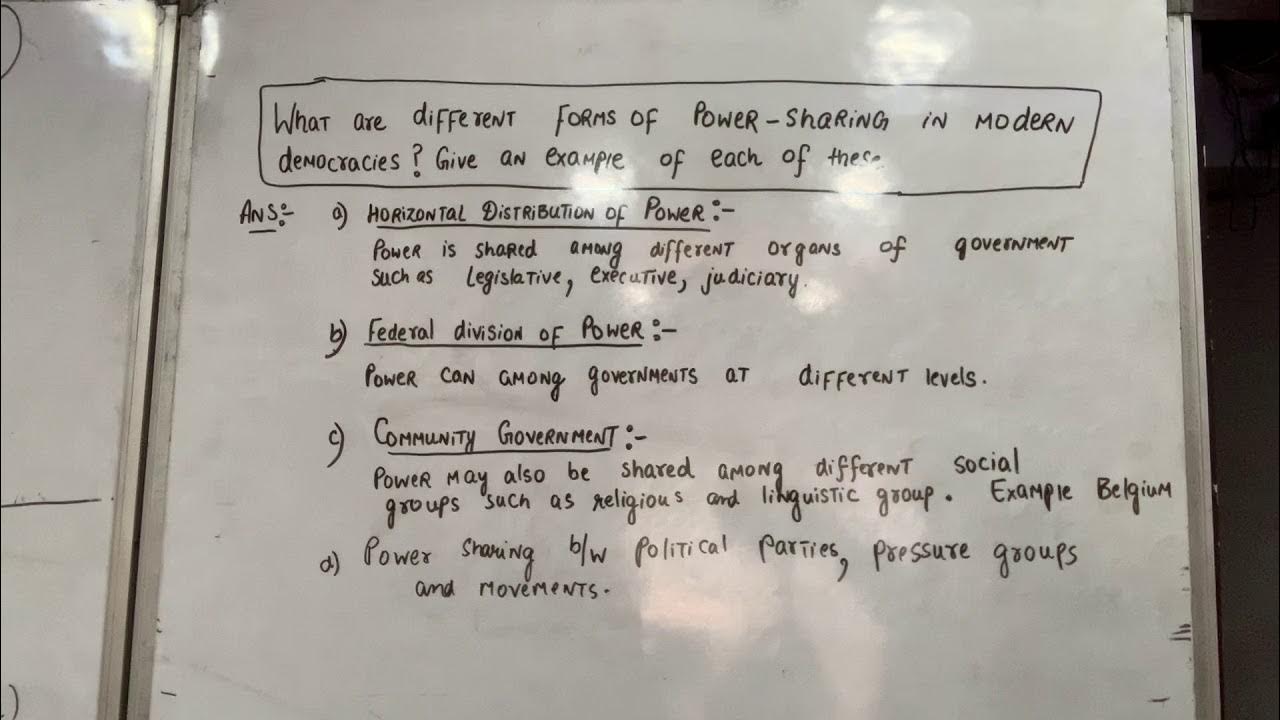 What are different forms of Power-sharing in modern
democracies? Give an example of each of these
Ans:- a) Horizontal Distribution of Power:-
Power is shared among different organs of government
such as legislative, executive, judiciary.
b) Federal division of Power:-
Power can among governments at different levels.
c) Community Government:-
Power may also be shared among different social
groups such as religious and linguistic group. Example Belgium
d) Power sharing b/w political parties, pressure groups
and movements.